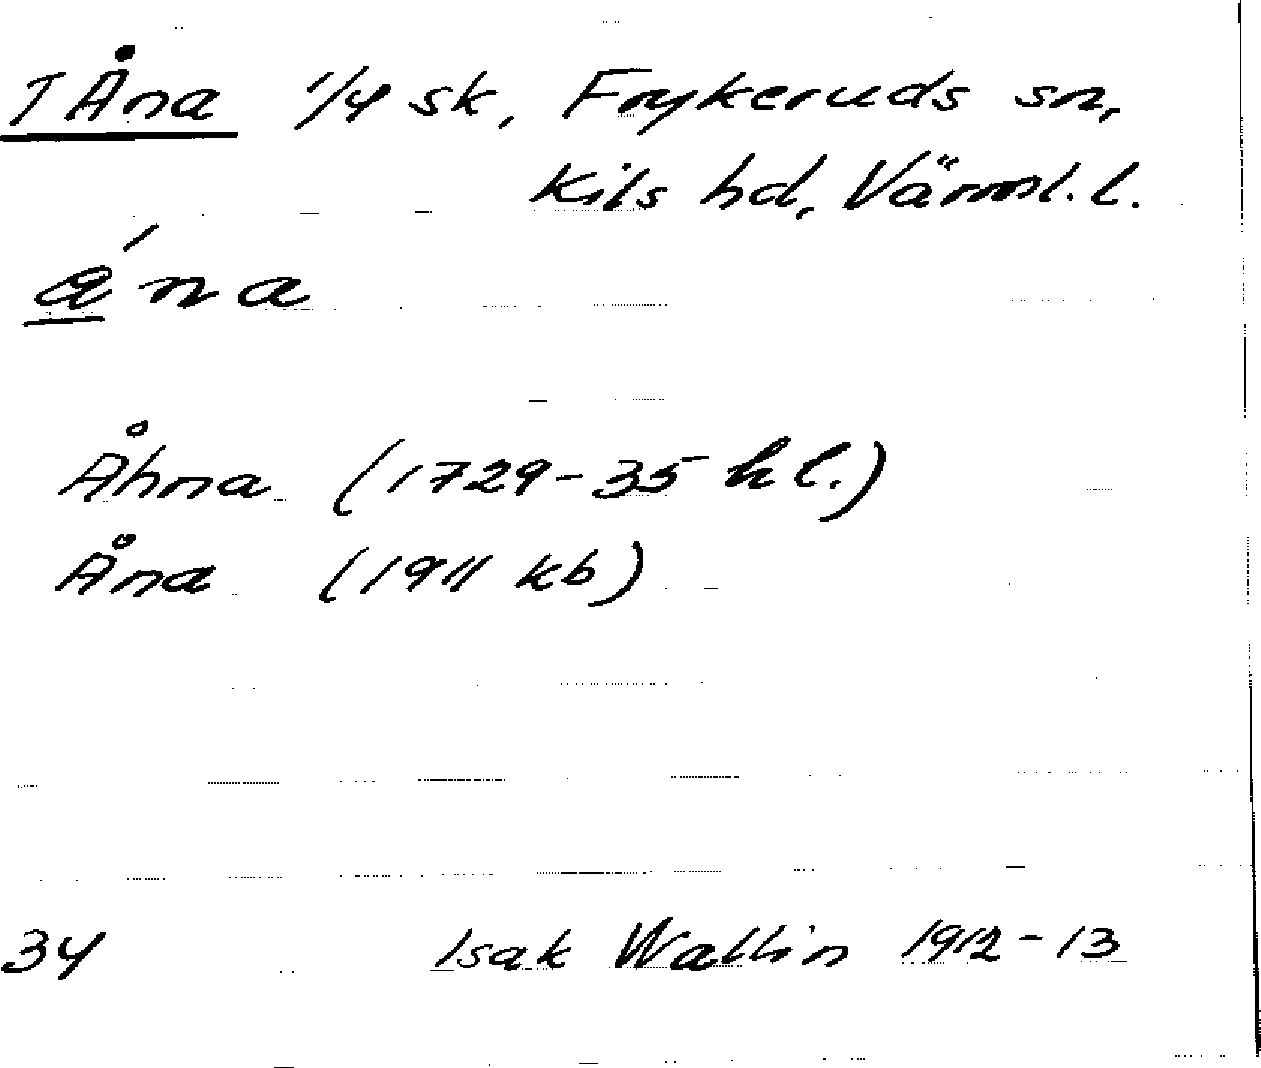 T Åna 1/4 sk, Frykeruds sn,
Kils hd, Värml. l.
a´na
Åhna (1729-35 hl.)
Åna (1911 kb)
34 Isak Wallin 1912-13